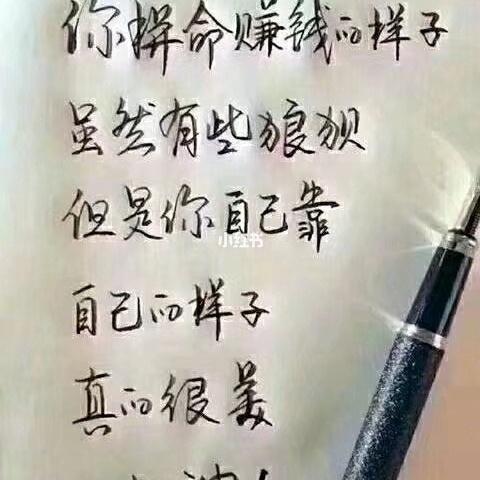 你拼命赚钱的样子
虽然有些狼狈
但是你自己靠
小红书
自己的样子
真的很美